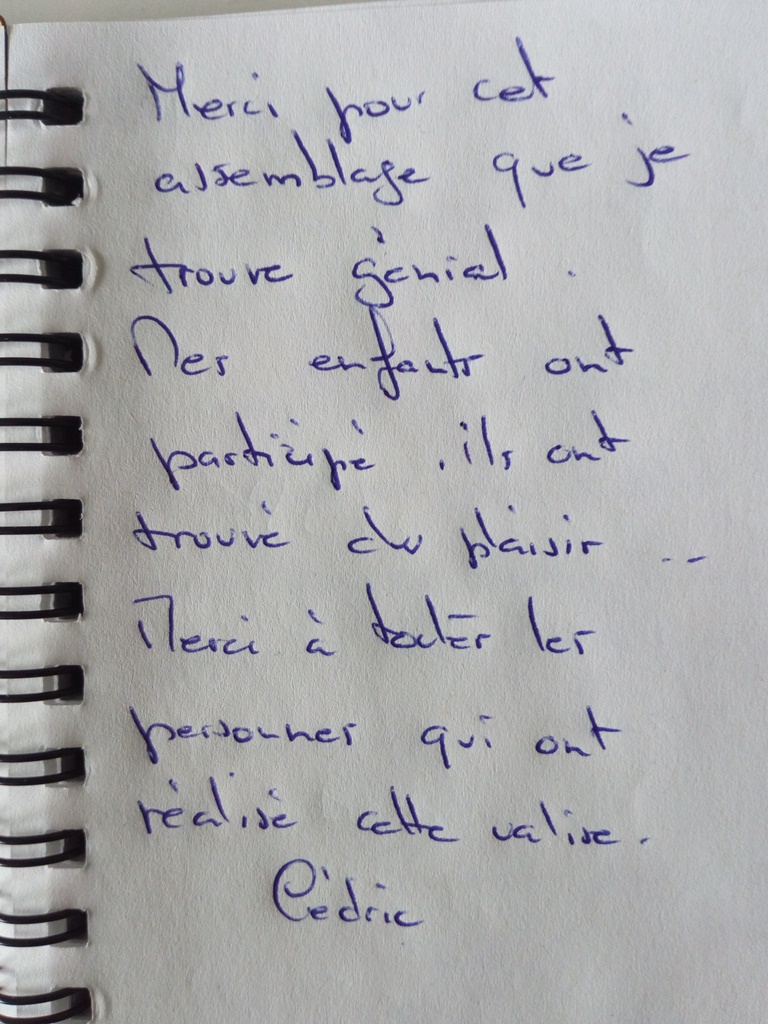 Merci pour cet
assemblage que je
trouve génial.
Mes enfants ont
participé, ils ont
trouvé du plaisir ..
Merci à toutes les
personnes qui ont
réalisé cette valise.
Cédric